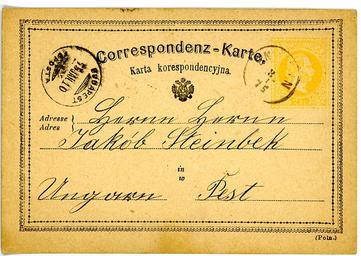 Correspondenz-Karte.
Karta korespondencyjna.
BUDAPEST
JAN. 10
Adresse
Adres
Herrn Herrn
Jakób Steinbek
in
w
Ungarn Pest
(Poln.)